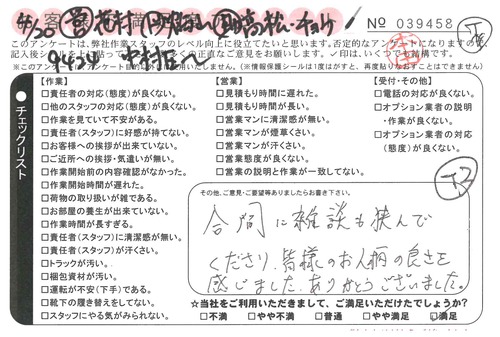 No 039458
このアンケートは、弊社作業スタッフのレベル向上に役立てたいと思います。否定的なアンケートになりますが、
記入後シールを
【作業】
□責任者の対応(態度)が良くない。
□他のスタッフの対応(態度)が良くない。
□作業を見ていて不安がある。
□責任者(スタッフ)に好感が持てない。
□お客様への挨拶が出来ていない。
□ご近所への挨拶・気遣いが無い。
□作業開始前の内容確認がなかった。
□作業開始時間が遅れた。
□荷物の取り扱いが雑である。
□お部屋の養生が出来ていない。
□作業時間が長すぎる。
□責任者(スタッフ)に清潔感が無い。
□責任者(スタッフ)が汗くさい。
□トラックが汚い。
□梱包資材が汚い。
□運転が不安(下手)である。
□靴下の履き替えをしてない。
□スタッフにやる気がみられない。
【営業】
□見積もり時間に遅れた。
□見積もり時間が長い。
□営業マンに清潔感が無い。
□営業マンが煙草くさい。
□営業マンが汗くさい。
□営業態度が良くない。
□営業の説明と作業が一致してない。
【受付・その他】
□電話の対応が良くない。
□オプション業者の説明
・作業が良くない。
□オプション業者の対応
(態度)が良くない。
チェックリスト
その他、ご意見・ご要望等ありましたらお書き下さい。
合間に雑談も挟んで
くださり、皆様のお人柄の良さを
感じました。ありがとうございました。
☆当社をご利用いただきまして、ご満足いただけたでしょうか?
□不満 □やや不満 □普通 □やや満足 □満足